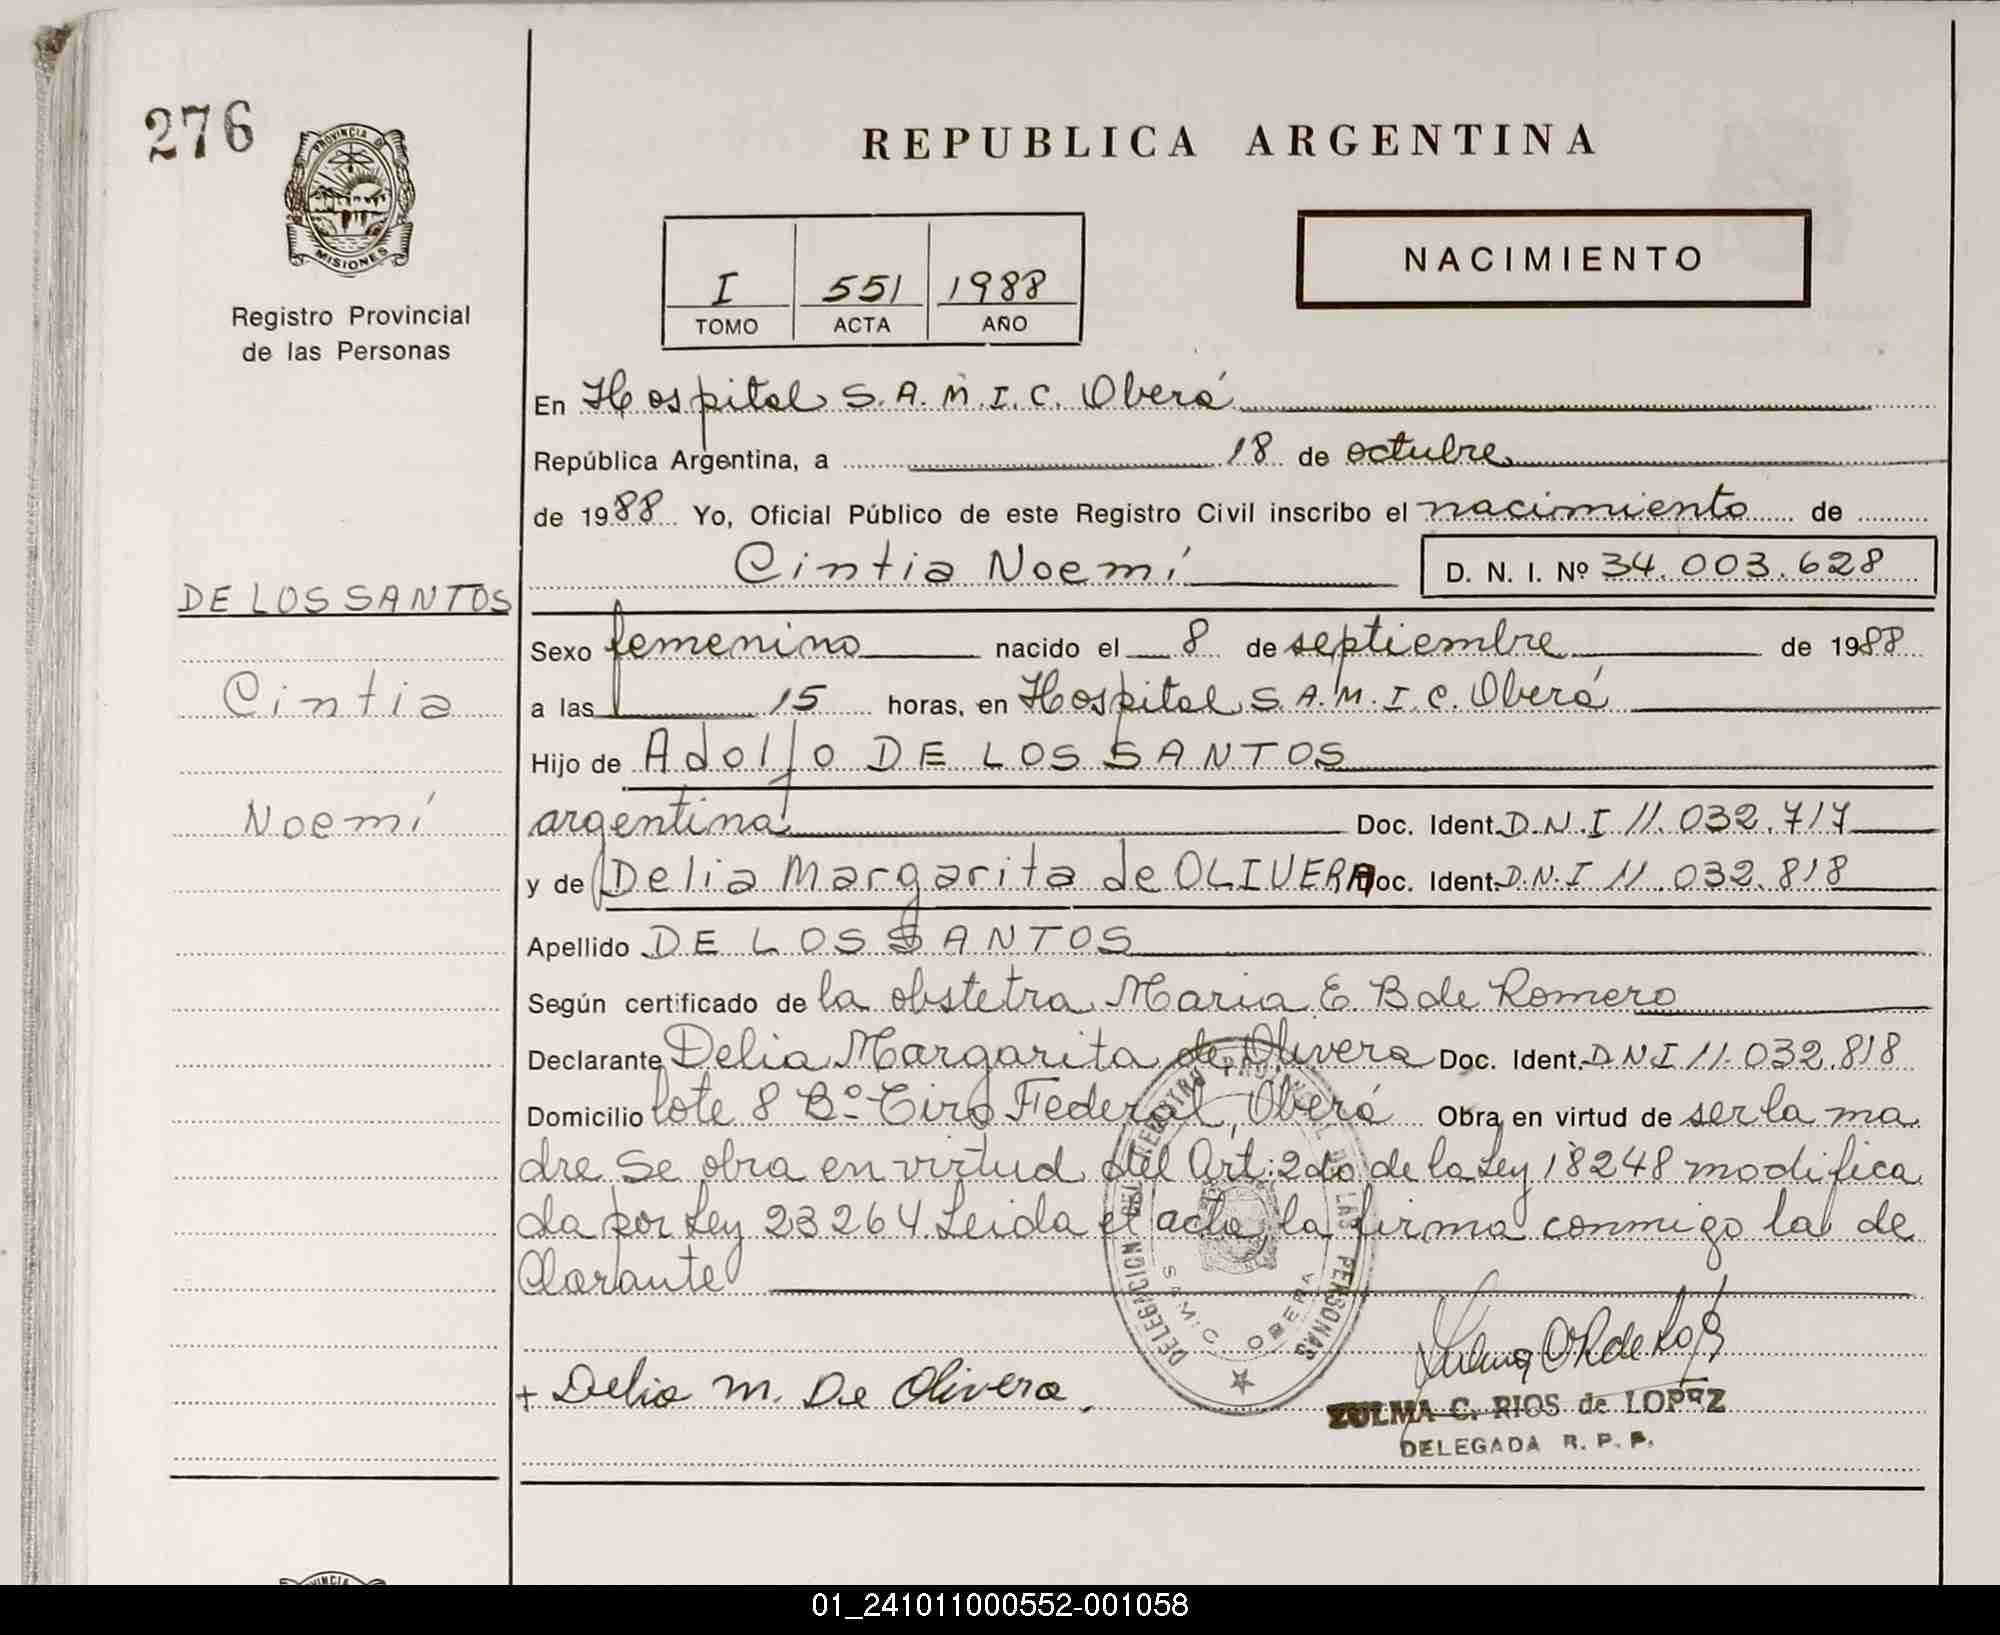 276
PROVINCIA DE
MISIONES
Registro Provincial
de las Personas
REPUBLICA ARGENTINA
I 551 1988
TOMO ACTA AÑO
NACIMIENTO
En Hospital S.A.M.I.C. Oberá
República Argentina, a 18 de octubre
de 1988 Yo, Oficial Público de este Registro Civil inscribo el nacimiento de
Cintia Noemí D. N. I. Nº 34.003.628
DE LOS SANTOS
Cintia
Noemí
Sexo femenino nacido el 8 de septiembre de 1988
a las 15 horas, en Hospital S.A.M.I.C. Oberá
Hijo de Adolfo DE LOS SANTOS
argentina Doc. Ident. D.N.I 11.032.717
y de Delia Margarita de OLIVERA Doc. Ident. D.N.I 11.032.818
Apellido DE LOS SANTOS
Según certificado de la obstetra Maria E. B de Romero
Declarante Delia Margarita de Olivera Doc. Ident. D N I 11.032.818
Domicilio lote 8 Bº Tiro Federal, Oberá Obra en virtud de ser la ma
dre Se obra en virtud del Art: 2do de la Ley 18248 modifica
da por Ley 23264. Leida el acta la firma conmigo la de
clarante
DELEGACION DEL REGISTRO PROVINCIAL DE LAS PERSONAS
SAMIC OBERA
+ Delia M. De Olivera.
ZULMA C. RIOS de LOPEZ
DELEGADA R. P. P.
01_241011000552-001058